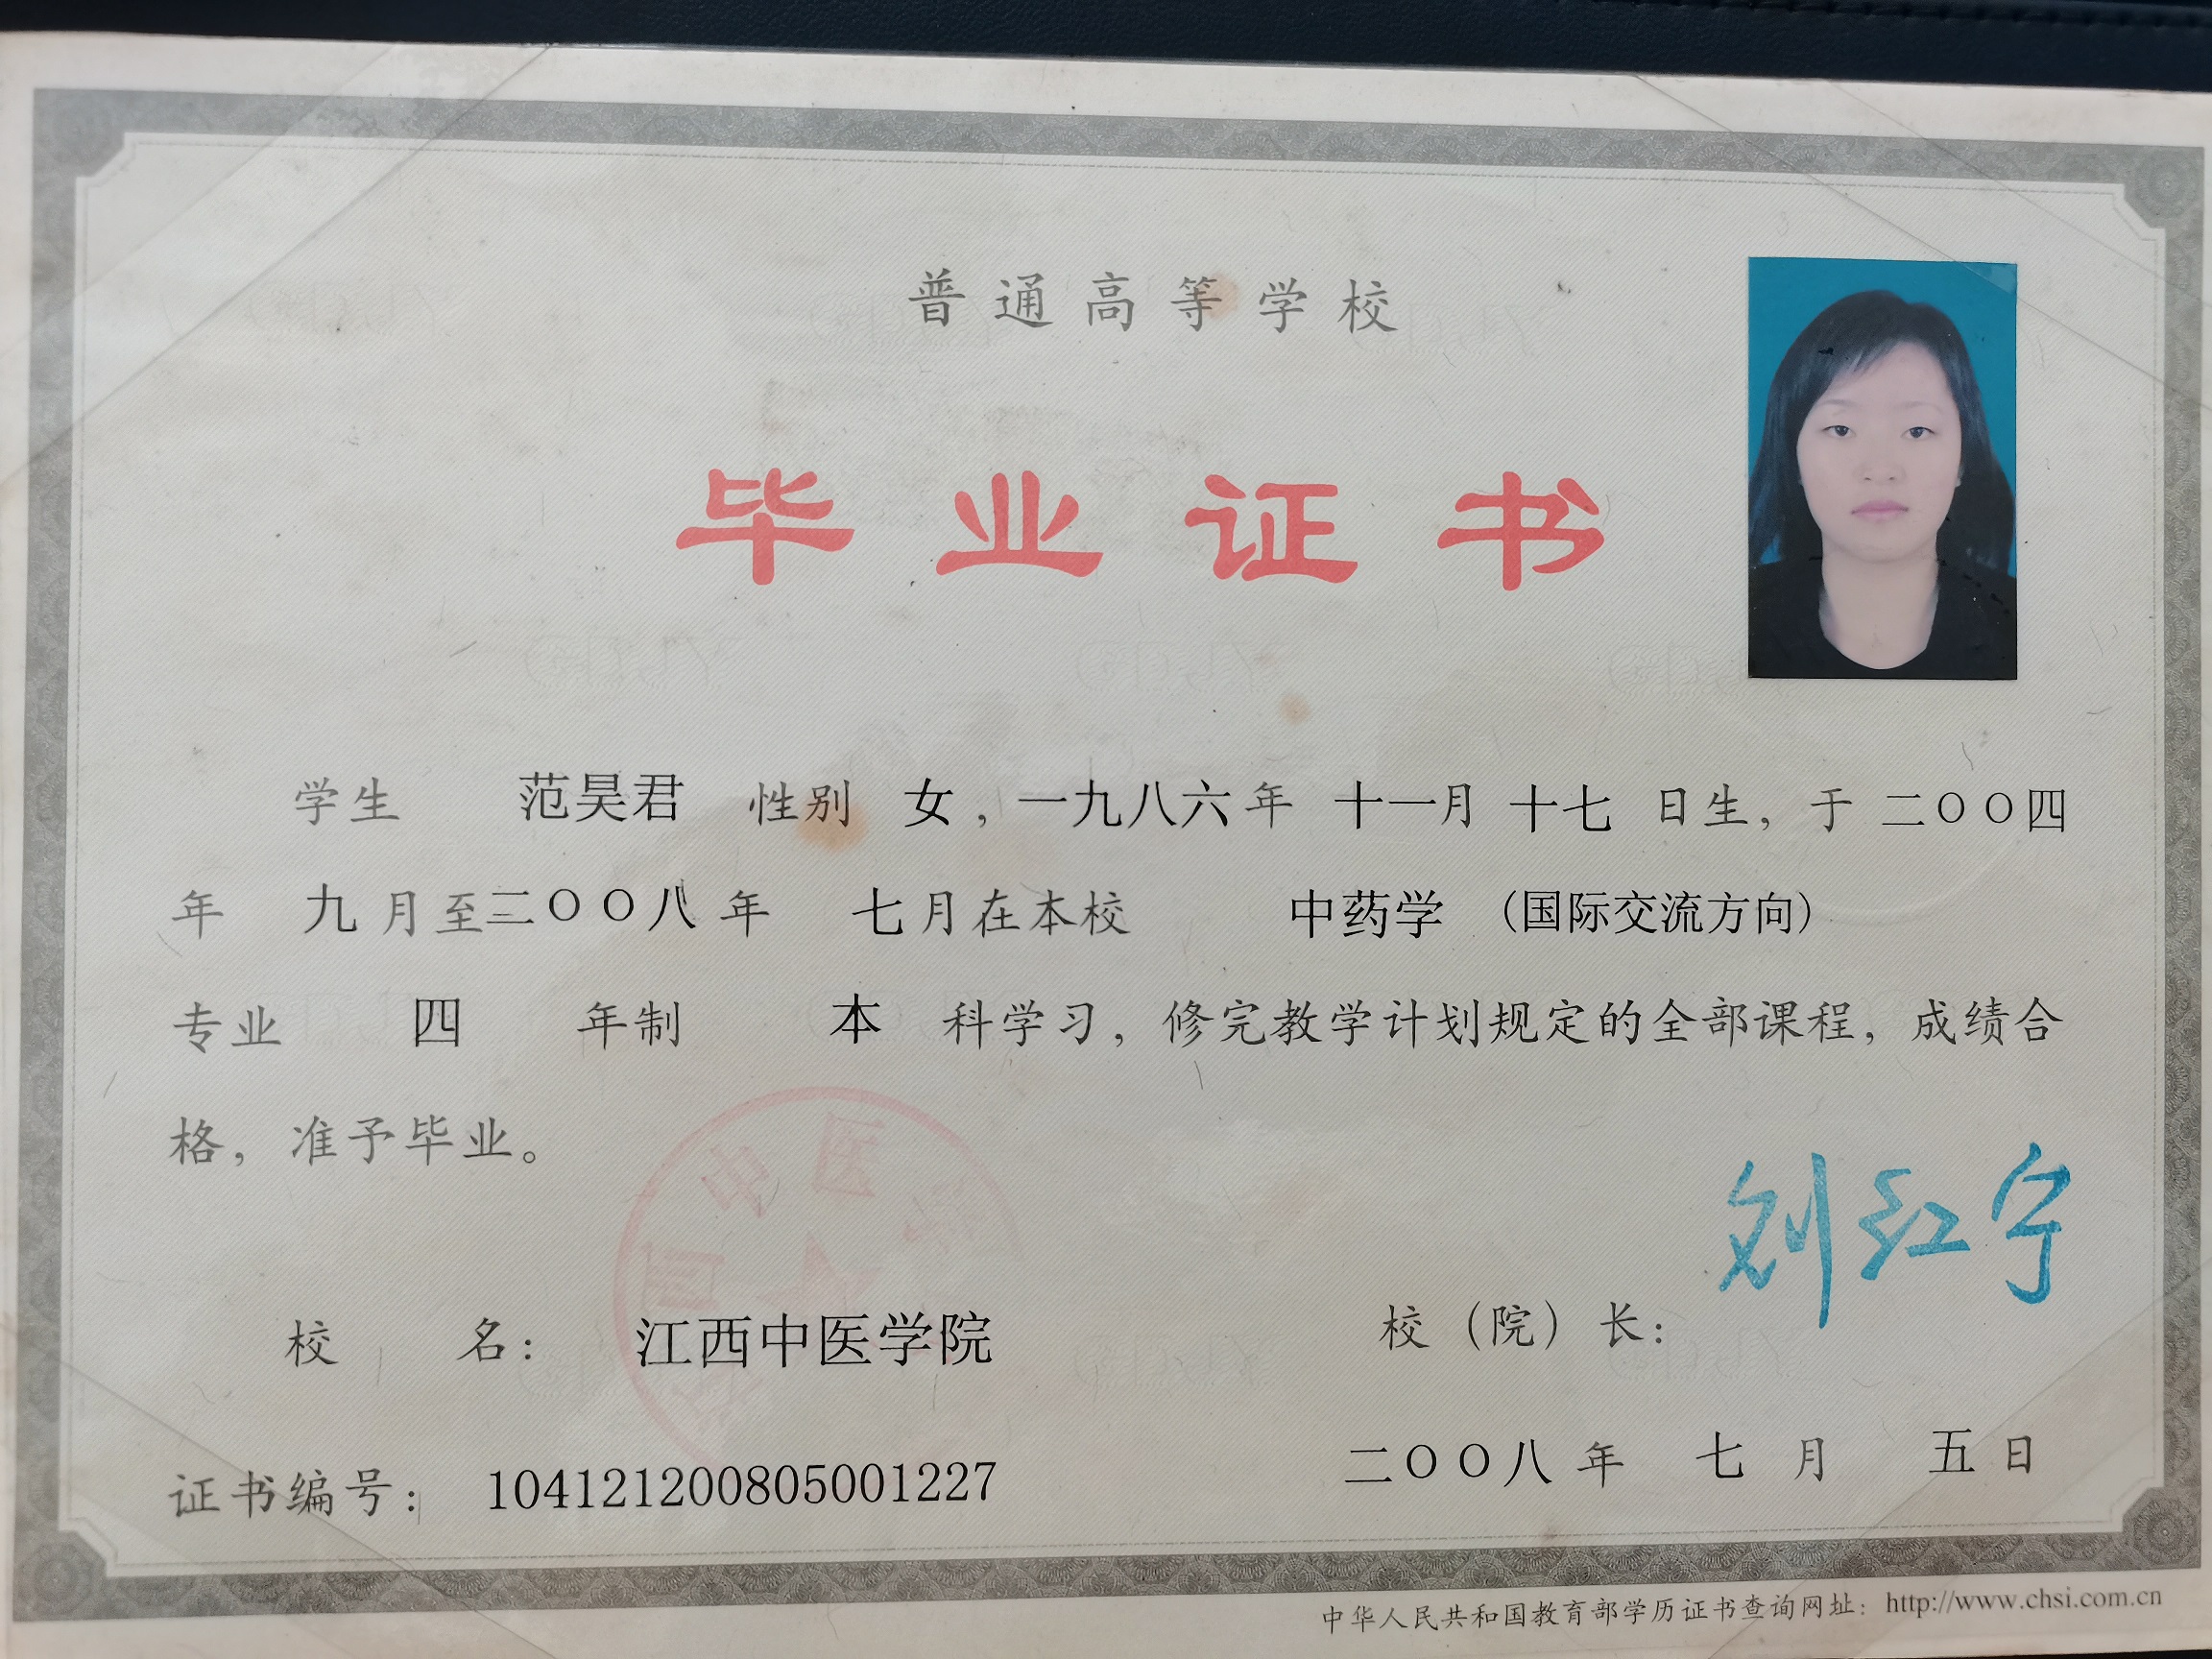 普通高等学校
毕业证书
学生 范昊君 性别 女，一九八六年 十一月 十七 日生，于 二〇〇四
年 九 月至二〇〇八 年 七月在本校 中药学 （国际交流方向）
专业 四 年制 本 科学习，修完教学计划规定的全部课程，成绩合
格，准予毕业。
刘红宁
校 名：江西中医学院 校（院）长：
证书编号：104121200805001227 二〇〇八 年 七 月 五 日
中华人民共和国教育部学历证书查询网址：http://www.chsi.com.cn